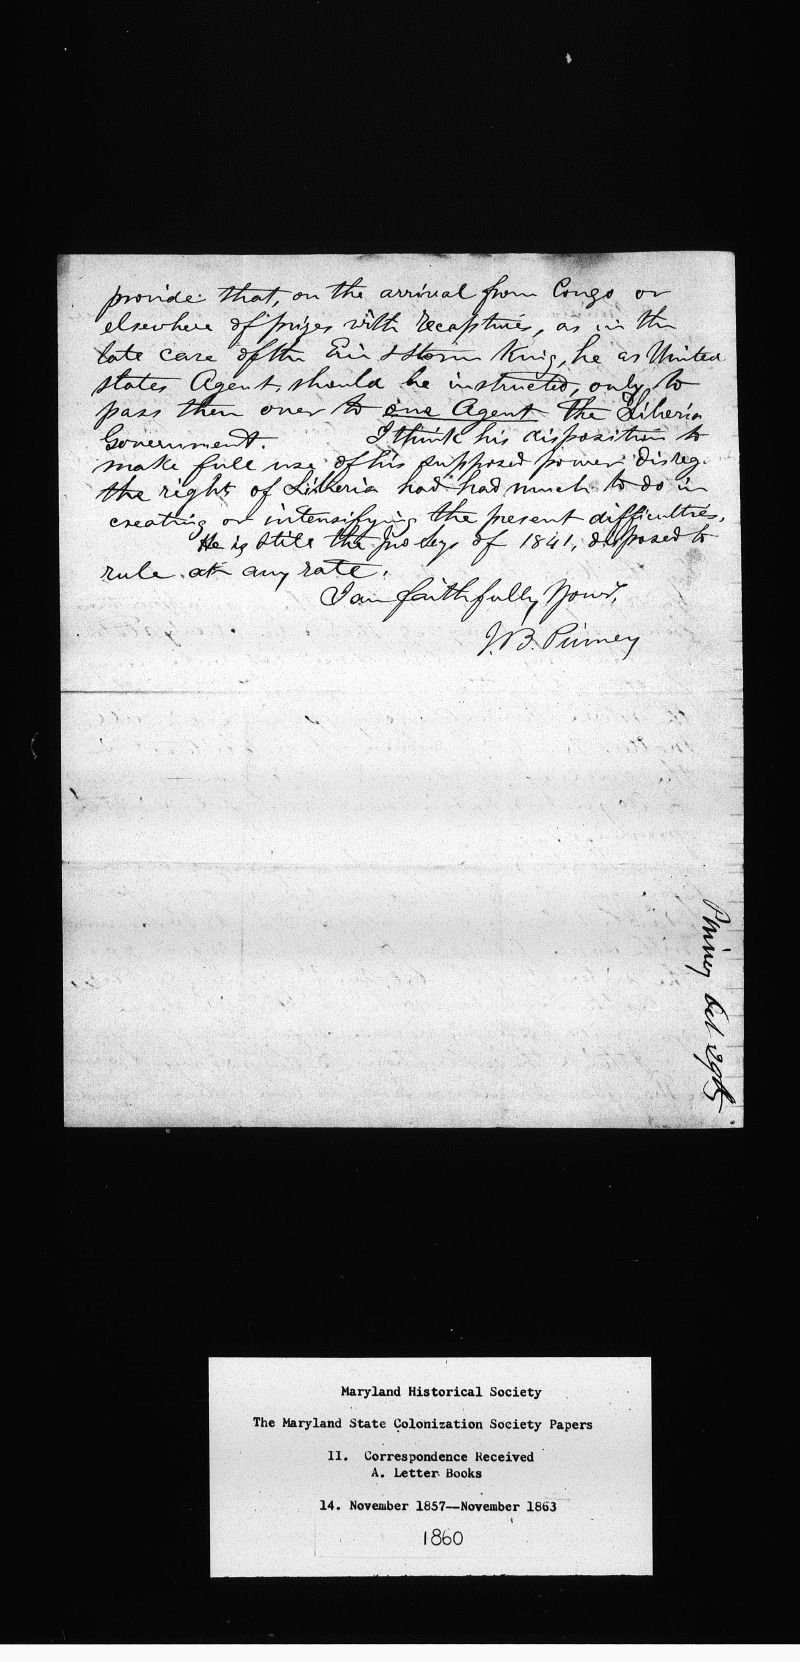 provide that, on the arrival from Congo or
elsewhere of prizes with recaptives, as in the
late case of the Erie & Storm King, he as United
States Agent, should be instructed, only, to
pass them over to one Agent the Liberia
Government. I think his disposition to
make full use of his supposed power disreg.
the right of Liberia had had much to do in
creating or intensifying the present difficulties.
He is still the of 1841, disposed to
rule at any rate.
I am faithfully Yours,
J. B. Pinney
Pinney Oct 29th
Maryland Historical Society
The Maryland State Colonization Society Papers
II. Correspondence Received
A. Letter Books
14. November 1857--November 1863
1860